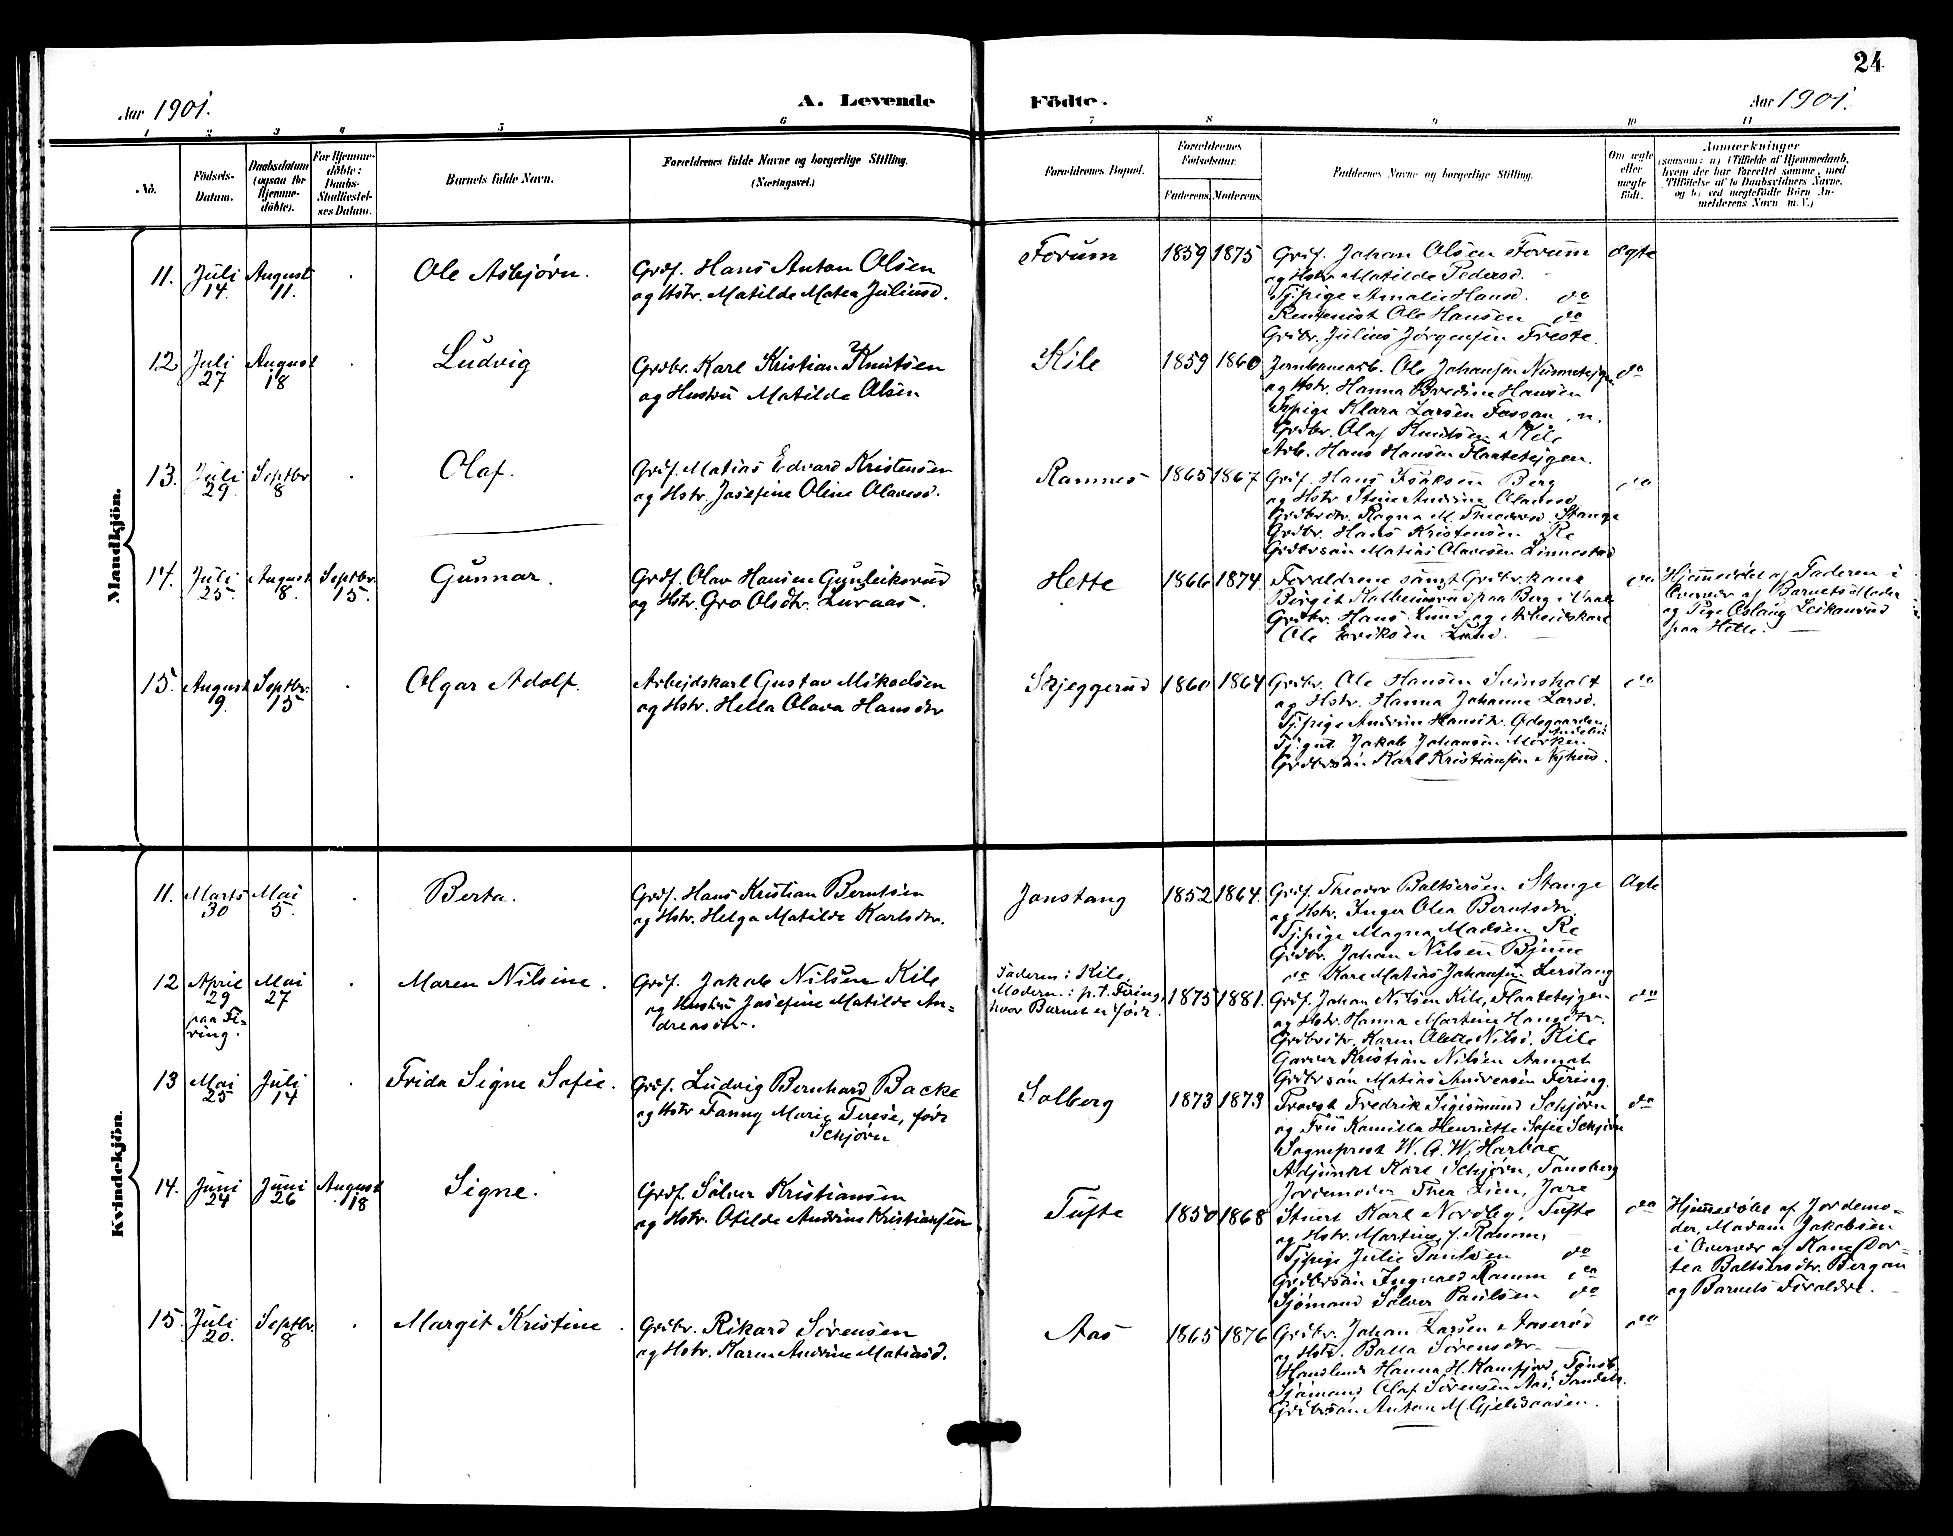 24
Aar 1901.
A. Levende
Födte.
Aar 1901.
1 2 3 4 5 6 7 8 9 10 11
No.
Födsels-
Datum.
Daabsdatum
(ogsaa for
Hjemme-
döbte).
For Hjemme-
döbte:
Daabs-
Stadfæstel-
ses Datum.
Barnets fulde Navn.
Forældrenes fulde Navne og borgerlige Stilling.
(Næringsvei.)
Forældrenes Bopæl.
Forældrenes
Fødselsaar.
Faderens. Moderens.
Faddernes Navne og borgerlige Stilling.
Om ægte
eller
uægte
födt.
Anmærkninger
(saasom: a) i Tilfælde af Hjemmedaab,
hvem der har forrettet samme, med
Tilföielse af to Daabsvidners Navne,
og b) ved uægtefödte Börn An-
melderens Navn m. V.)
Mandkjön.
11.
Juli
14.
August
11.
Ole Asbjørn.
Grdf. Hans Anton Olsen
og Hstr. Matilde Matea Juliusd.
Forum
1859
1875
Grdf. Johan Olsen Forum
og Hstr. Matilde Pedersd.
Tj.pige Amalie Hansd. do
Ole Hansen do
Grdbr. Julius Jørgensen Freste.
ægte
12
Juli
27
August
18
Ludvig
Grdbr. Karl Kristian Knutsen
og Hustru Matilde Olsen
Kile
1859
1860
Jernbanearb. Ole Johansen
og Hstr. Hanna Bredine Hansen
Tj.pige Klara Larsen Fossan
Grdbr. Olaf Knutsen Kile
Arb. Hans Hansen Flaateteigen.
do
13.
Juli
29.
Septbr.
8
Olaf.
Grdf. Matias Edvard Kristensen
og Hstr. Josefine Oline Olavesd.
Ramnes
1865
1867
Grdf. Hans Isaksen Berg
og Hstr. Stine Andrine Olavesd.
Grdbrdtr. Ragna M. Theodorsd. Stange
Grdbr. Hans Kristensen Re
Grdbrsøn Matias Olavesen Linnestad
do
14.
Juli
25.
August
8.
Septbr.
15.
Gunnar.
Grdf. Olav Hansen Gunleiksrud
og Hstr. Gro Olsdtr. Luraas.
Hette
1866
1874
Forældrene samt Grdbr.kone
Birgit paa Berg i Vaale
Grdbr. Hans Lund og Arbeidskarl
Ole Eriksen Lund.
do
Hjemmedøbt af Faderen i
Overvær af Barnets Moder
og Pige Aslaug
paa Hette.
15.
August
9.
Septbr.
15
Olgar Adolf.
Arbejdskarl Gustav Mikaelsen
og Hstr. Hella Olava Hansdtr
Skjeggerud
1860
1864
Grdbr. Ole Hansen Svinsholt
og Hstr. Hanna Johanne Larsd.
Tj.pige Andrine Hansdtr. Ødegaarden,
Tj.gut. Jakob Johansen
Grdbrsøn Karl Kristiansen Nyhus.
do
Kvindekjön.
11.
Marts
30
Mai
5.
Berta.
Grdf. Hans Kristian Berntsen
og Hstr. Helga Matilde Karlsdtr.
Jonstang
1852
1864.
Grdf. Theodor Baltsersen Stange
og Hstr. Inger Olea Berntsdtr.
Tj.pige Magna Madsen Re
Grdbr. Johan Nilsen Bjune
do Karl Matias Johansen Lerstang
Ægte
12
April
29
paa Fi-
ring.
Mai
27
Maren Nilsine.
Grdf. Jakob Nilsen Kile
og Hustru Josefine Matilde An-
dreasdtr.
Faderen: Kile,
Moderen: p.t. Firing,
hvor Barnet er født.
1875
1881.
Grdf. Johan Nilsen Kile, Flaateteigen
og Hstr. Hanna Martine Hansdtr.
Grdbrdtr. Karen Olette Nilsd. Kile
Garver Kristian Nilsen
Grdbrsøn Matias Andreasen Firing.
do
13
Mai
25
Juli
14
Frida Signe Sofie.
Grdf. Ludvig Bernhard Backe
og Hstr Fanny Marie Terese, født
Schjørn
Solberg
1873
1873
Provst Fredrik Sigismund Schjørn
og Fru Kamilla Henriette Sofie Schjørn
Sogneprest W. A. W. Harboe
Adjunkt Karl Schjørn, Tønsberg
Jordemoder Thea Lien, Jare
do
14.
Juni
24
Juni
26
August
18
Signe.
Grdf. Sølver Kristiansen
og Hstr. Otilde Andrine Kristiansen
Tufte
1850
1868
Stuert Karl Nordby, Tufte
og Hstr. Martine, f. Ramm,
Tj.pige Julie Paulsen do
Grdbrsøn Ingvald Ramm do
Sjømand Sølver Paulsen do
do
Hjemmedøbt af Jordemo-
der, Madam Jakobsen
i Overvær af Kone Dor-
tea Baltsersdtr. Bergan
og Barnets Forældre.
15.
Juli
20.
Septbr.
8
Margit Kristine.
Grdbr. Rikard Sørensen
og Hstr. Karen Andrine Matiasd.
Aas
1865
1876
Grdbr. Johan Larsen Aaserød
og Hstr. Balla Sørensdtr.
Handlende Hanna H. Kamfjord, Tønsb.
Sjømand Olaf Sørensen Aas, Sandeh.
Grdbrsøn Anton M. Gjelsaasen.
do